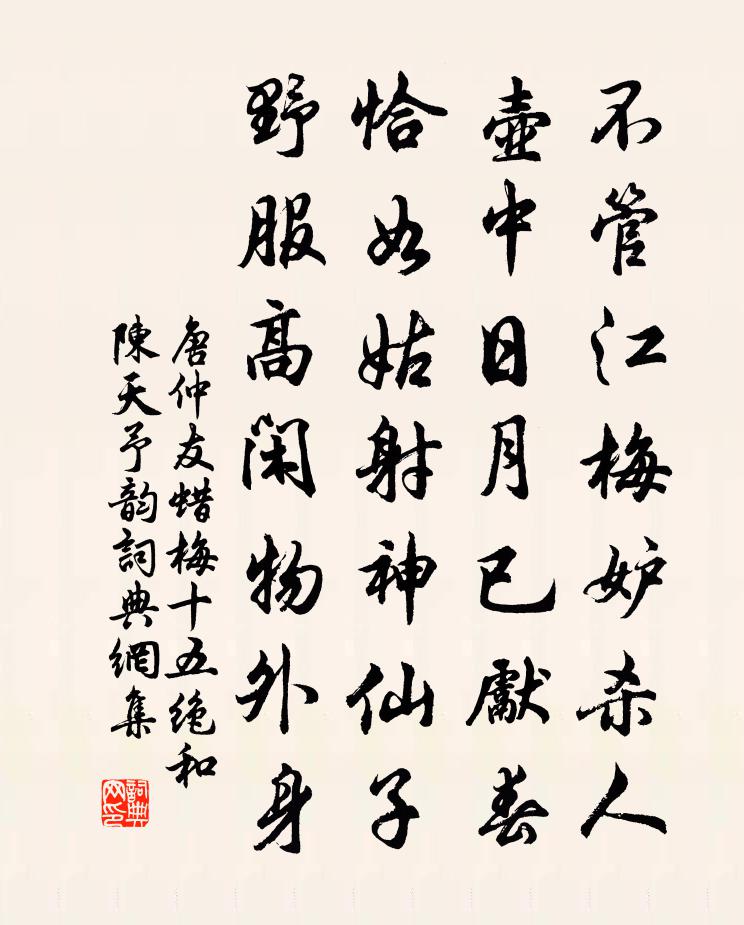 不管江梅妒杀人
壺中日月已獻春
恰如姑射神仙子
野服高閑物外身
唐仲友蜡梅十五绝和
陳天予韵詞典網集
詞典网印